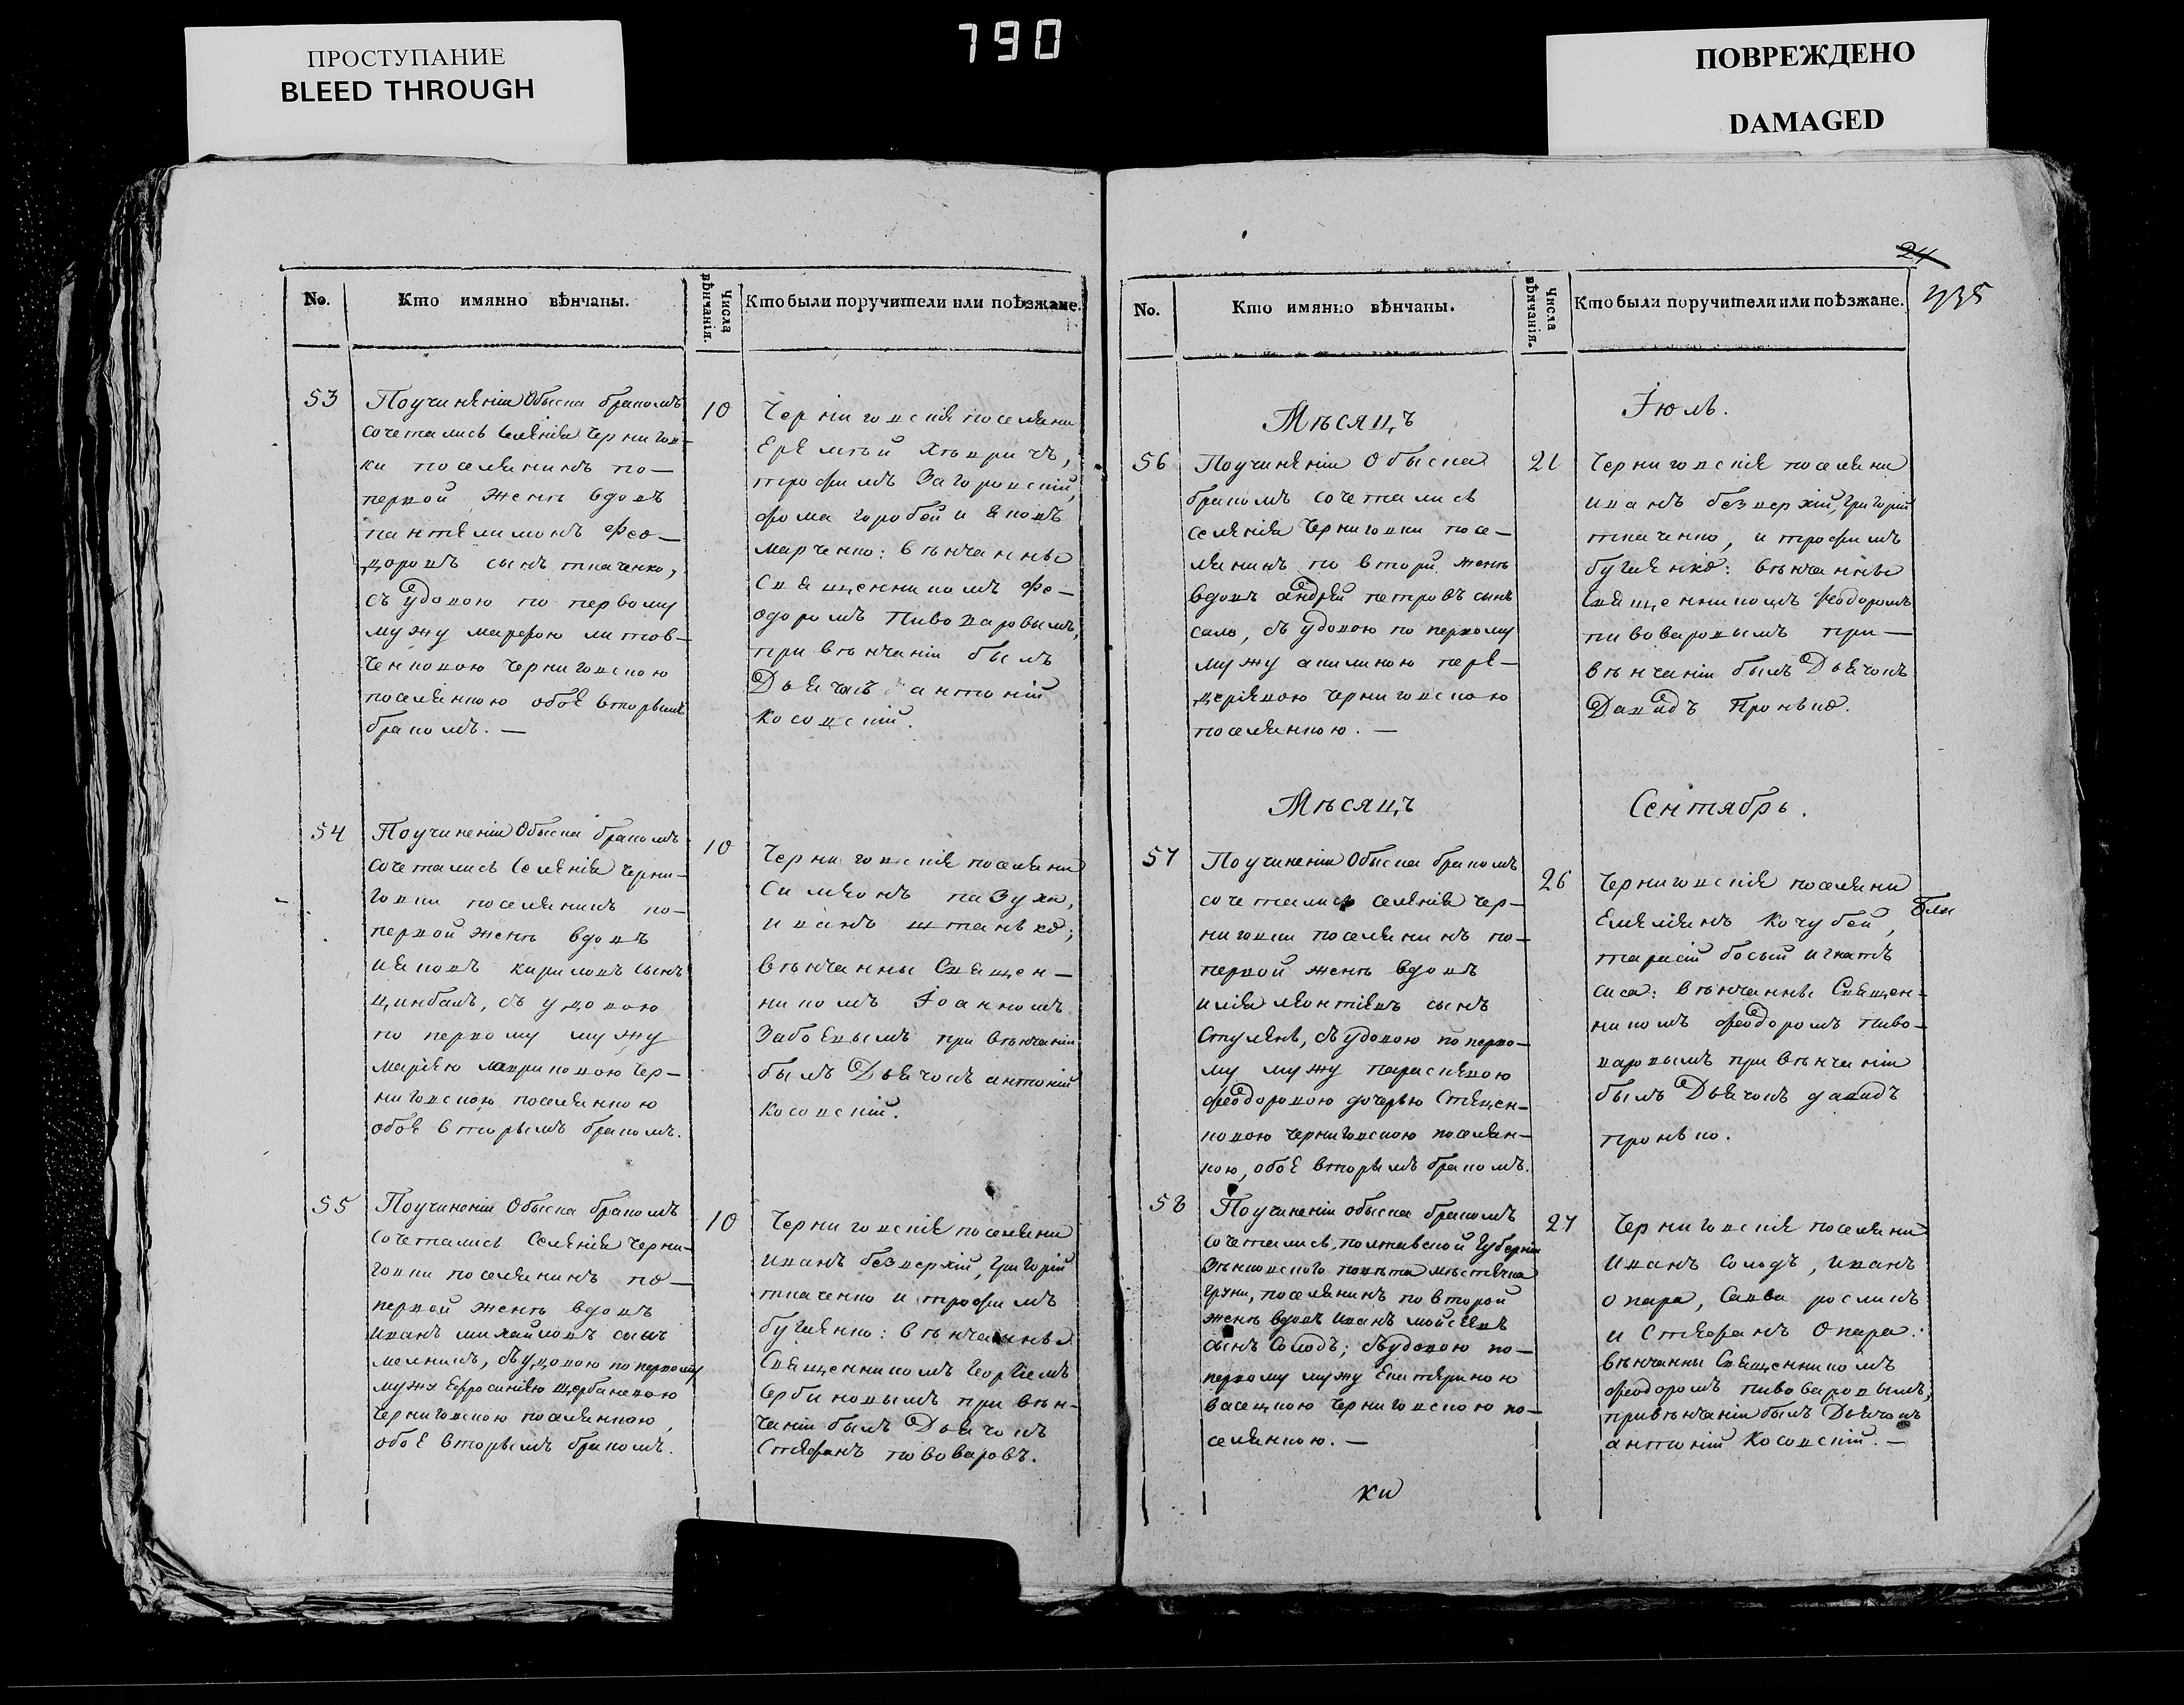 ПРОСТУПАНИЕ
BLEED THROUGH
790
ПОВРЕЖДЕНО
DAMAGED
No.
Кто имянно вѣнчаны.
Числа вѣнчанія.
Кто были поручители или поѣзжане.
53
Поучиненіи Обыска бракомъ
сочетались Селенія Чернигов-
ки поселянинъ по-
первой женѣ вдовъ
пантелимонъ Фео-
доровъ сынъ ткаченко,
съ удовою по первому
мужу марфою литов-
ченковою черниговскою
поселянкою обое вторымъ
бракомъ. —
10
Черниговскіе поселяни
Еремѣй Хѣвричъ,
трофимъ Загоровскій,
фома горобей и яковъ
марченко: вѣнчанны
Священникомъ Фе-
одоромъ Пивоваровымъ,
при вѣнчаніи былъ
Дьячокъ антоній
Косовскій.
54
Поучиненіи Обыска бракомъ
сочетались Селенія Черни-
говки поселянинъ по-
первой женѣ вдовъ
яковъ кириловъ сынъ
цимбалъ, съ удовою
по первому мужу
маріею макриковою чер-
ниговскою поселянкою
обое вторымъ бракомъ.
10
Черниговскіе поселяни
Симеонъ пазуха,
иванъ штанько;
вѣнчанны Священ-
никомъ Іоанномъ
Забоевымъ при вѣнчаніи
былъ Дьячокъ антоній
Косовскій.
55
Поучиненіи Обыска бракомъ
сочетались Селенія Черни-
говки поселянинъ по-
первой женѣ вдовъ
иванъ михайловъ сынъ
мелникъ, съ удовою по первому
мужу Ефросиніею щербаневою
Черниговскою поселянкою,
обое вторымъ бракомъ.
10
Черниговскіе поселяни
иванъ безверхій, григорій
ткаченко и трофимъ
бугаенко: вѣнчанны
Священникомъ Георгіемъ
Сербиновымъ при вѣн-
чаніи былъ Дьячокъ
Стефанъ пивоваровъ.
24
No.
Кто имянно вѣнчаны.
Числа вѣнчанія.
Кто были поручители или поѣзжане.
Мѣсяцъ
Іюль.
56
Поучиненіи Обыска
бракомъ сочетались
селенія Черниговки посе-
лянинъ по втори женѣ
вдовъ андрей петровъ сынъ
сало, съ удовою по первому
мужу акилиною пере-
деріевою черниговскою
поселянкою. —
21
Черниговскіе поселяни
иванъ безверхій, григорій
ткаченко, и трофимъ
бугаенко: вѣнчанны
Священникомъ Феодоромъ
пивоваровымъ при-
вѣнчаніи былъ Дьячокъ
Давидъ Пронько.
Мѣсяцъ
Сентябрь.
57
Поучиненіи Обыска бракомъ
сочетались селенія Чер-
ниговки поселянинъ по-
первой женѣ вдовъ
илія леонтіевъ сынъ
Стулень, съ удовою по перво-
му мужу параскевою
феодоровою дочерью Стецен-
ковою черниговскою поселян-
кою, обое вторымъ бракомъ.
26
Черниговскіе поселяни
Емеліянъ Кочубей,
тарасій босый игнатъ
сиса: вѣнчанны Священ-
никомъ феодоромъ пиво-
варовымъ при вѣнчаніи
былъ Дьячокъ давидъ
пронько.
58
Поучиненіи обыска бракомъ
сочетались, полтавской Губерніи
Зѣньковского повѣта мѣстечка
Груни, поселянинъ по второй
женѣ вдовъ иванъ мойсеевъ
сынъ Солодъ; съ удовою по-
первому мужу Екатериною
васецкою черниговскою по-
селянкою. —
27
Черниговскіе поселяни
Иванъ Солодъ, иванъ
опара, Савва росликъ
и Стефанъ Опара:
вѣнчанны Священникомъ
феодоромъ пивоваровымъ,
при вѣнчаніи былъ Дьячокъ
антоній Косовскій. —
ки